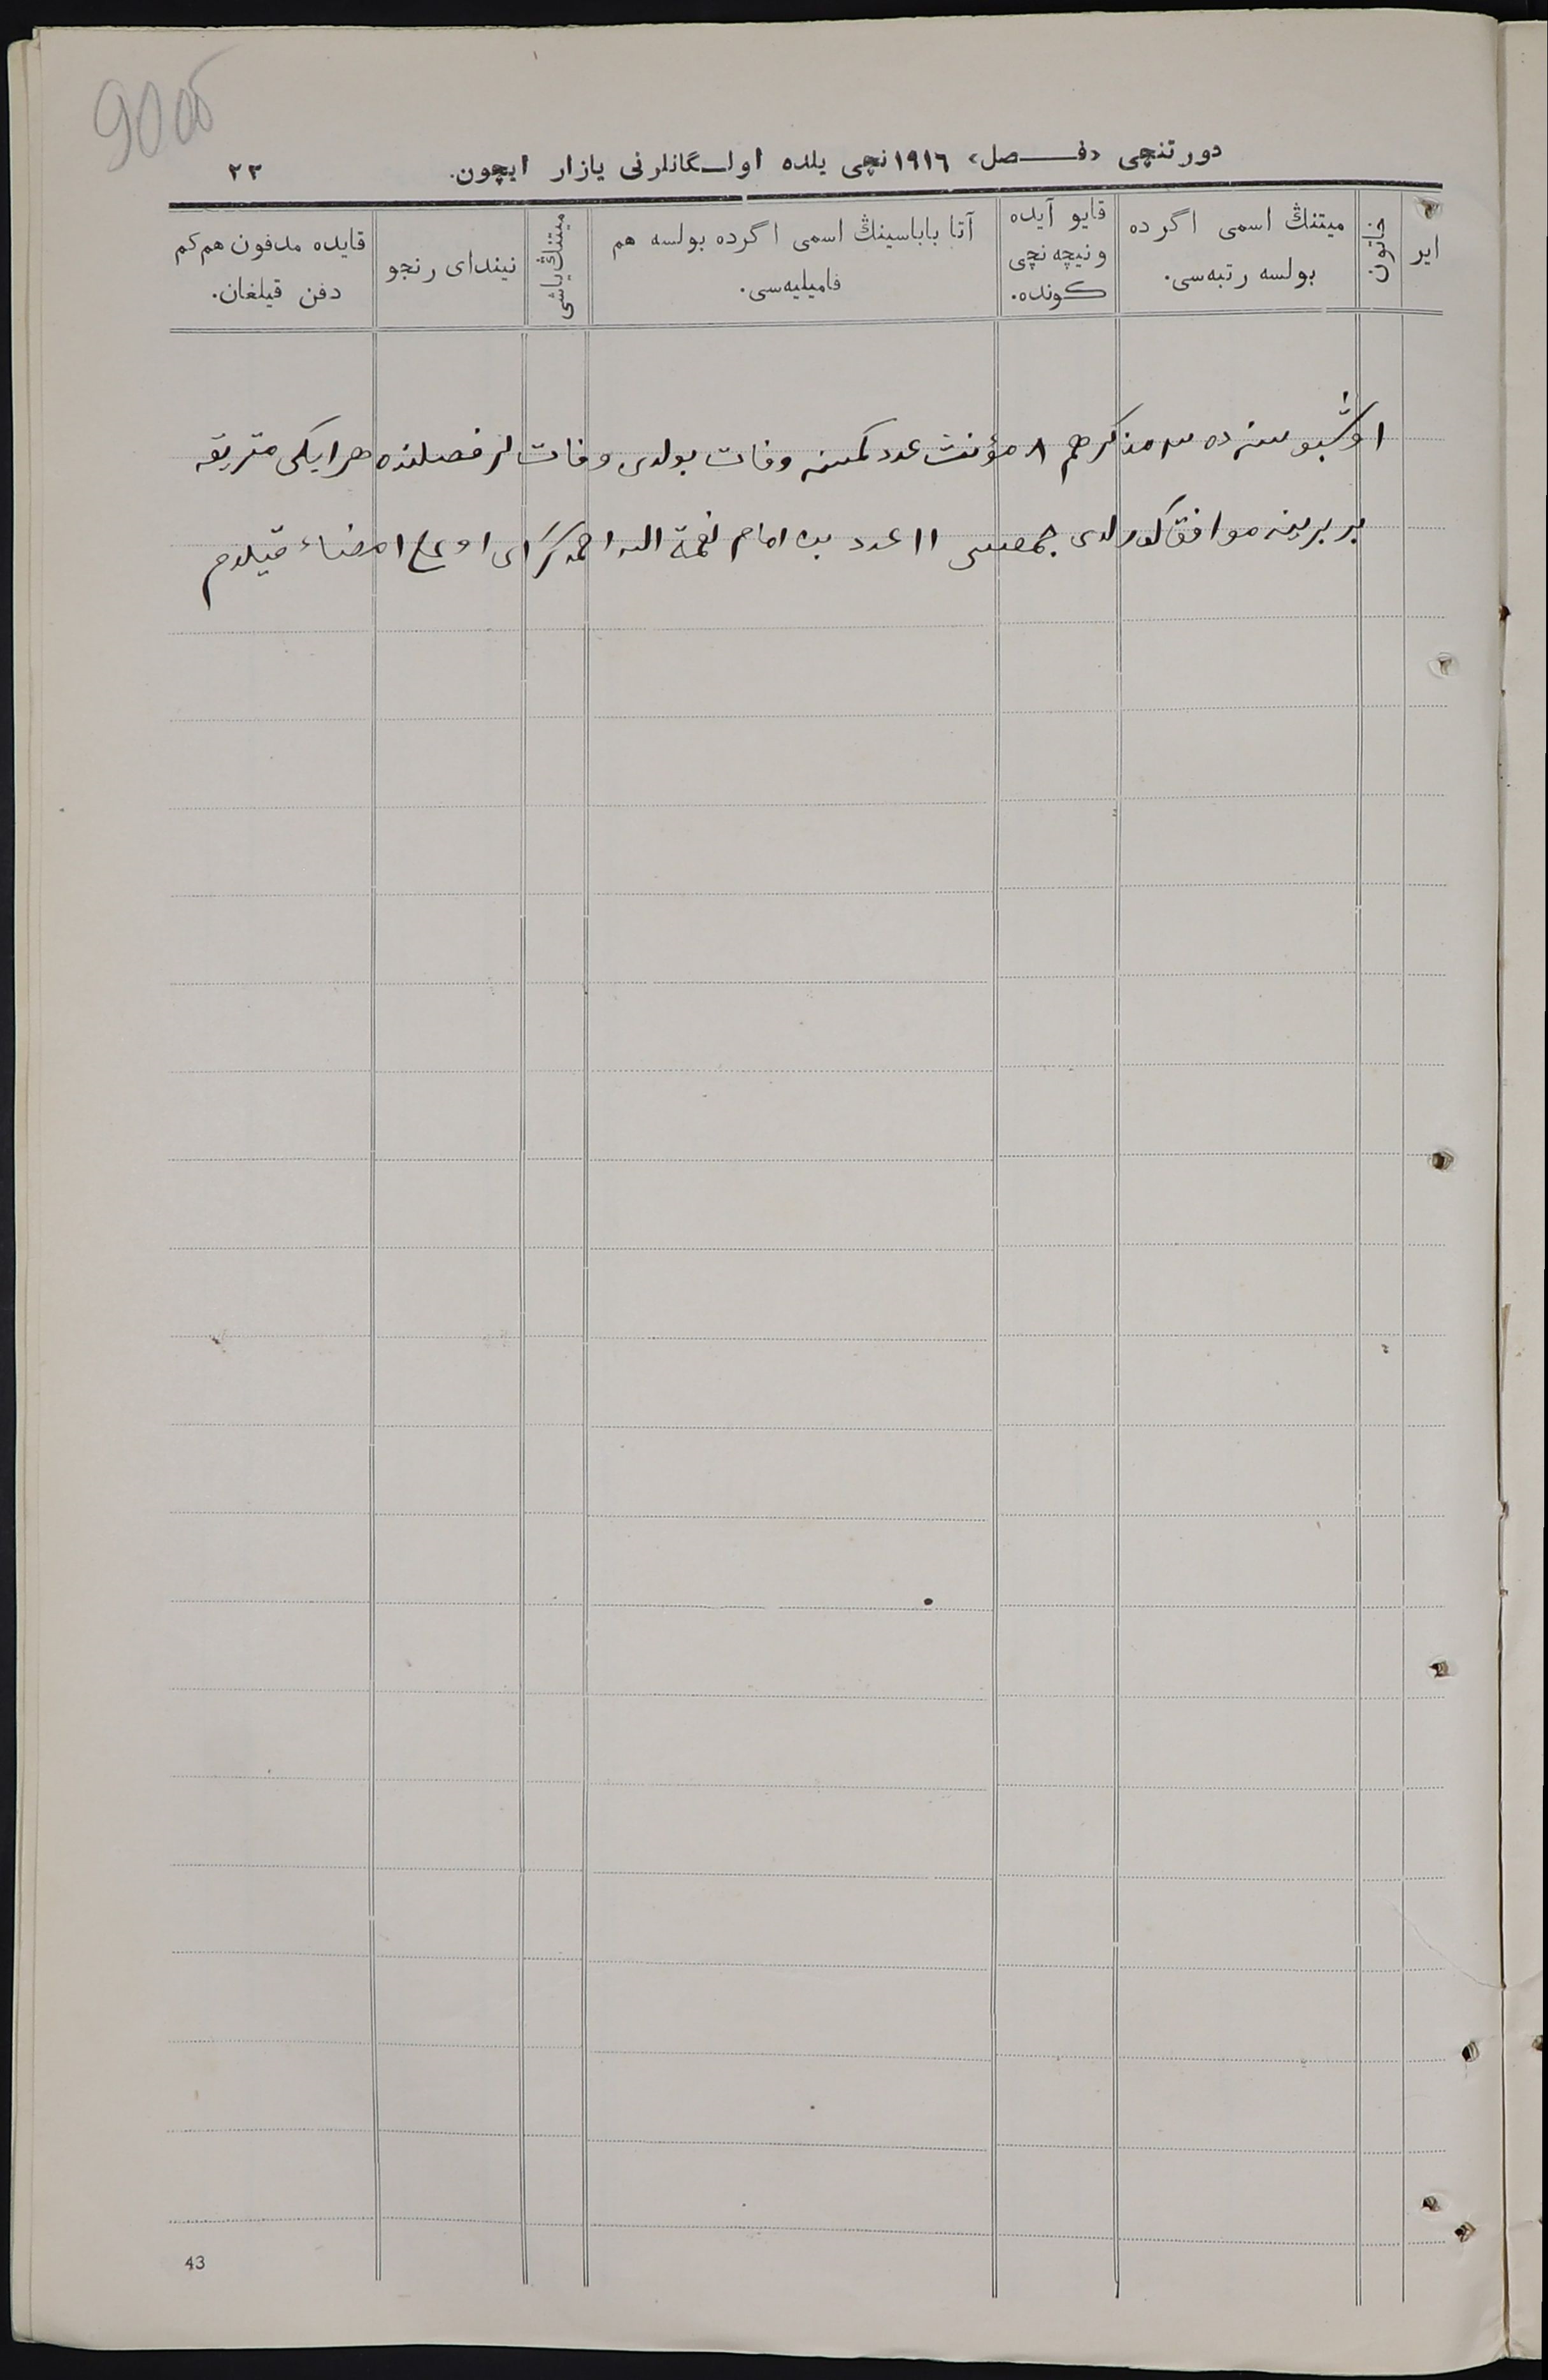 90об
دورتنچی «فـــصل» ١٩١٦نچی یلده اولـگانلرنی یازار ایچون. ٢٣
ایر
خاتون
میتنڭ اسمی اگرده
بولسه رتبه‌سی.
قایو آیده
ونیچه نچی
کونده.
آتا باباسینڭ اسمی اگرده بولسه هم
فامیلیه‌سی.
میتنڭ یاشی
نیندای رنجو
قایده مدفون هم کم
دفن قیلغان.
اوشبو سنه ده ٣ مذکر هم ٨ مؤنث عدد کمسنه وفات بولدی وفات لر فصلنده هر ایکی متریقه
بر برینه موافق کورلدی جمعسی ١١ عدد امام نعمة الله احمدگرای اوغلی امضاء قیلدم
43